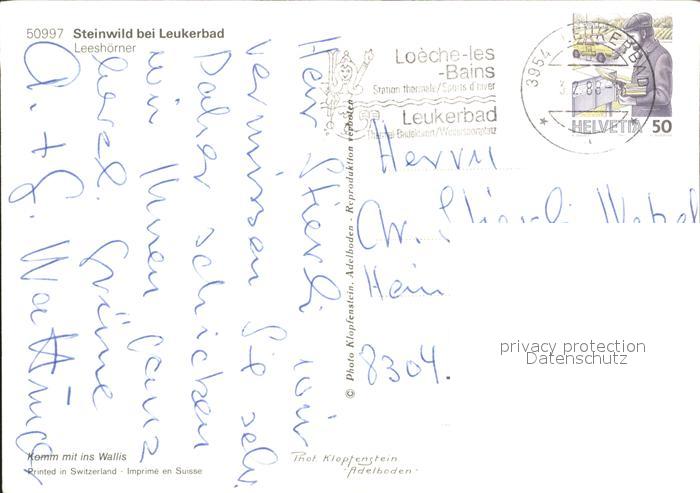 50997 Steinwild bei Leukerbad
Leeshörner
Loèche-les
-Bains
Station thermale/Sports d'hiver
Leukerbad
Thermal-Badekurort/Wintersportplatz
3954 LEUKERBAD
HELVETIA 50
Herrn
8304.
privacy protection
Datenschutz
Herr wir
vermissen Sie sehr
Daher schicken
wir Ihnen ganz
Grüsse
© Photo Klopfenstein, Adelboden - Reproduktion verboten
Komm mit ins Wallis
Printed in Switzerland - Imprimé en Suisse
Phot. Klopfenstein
Adelboden